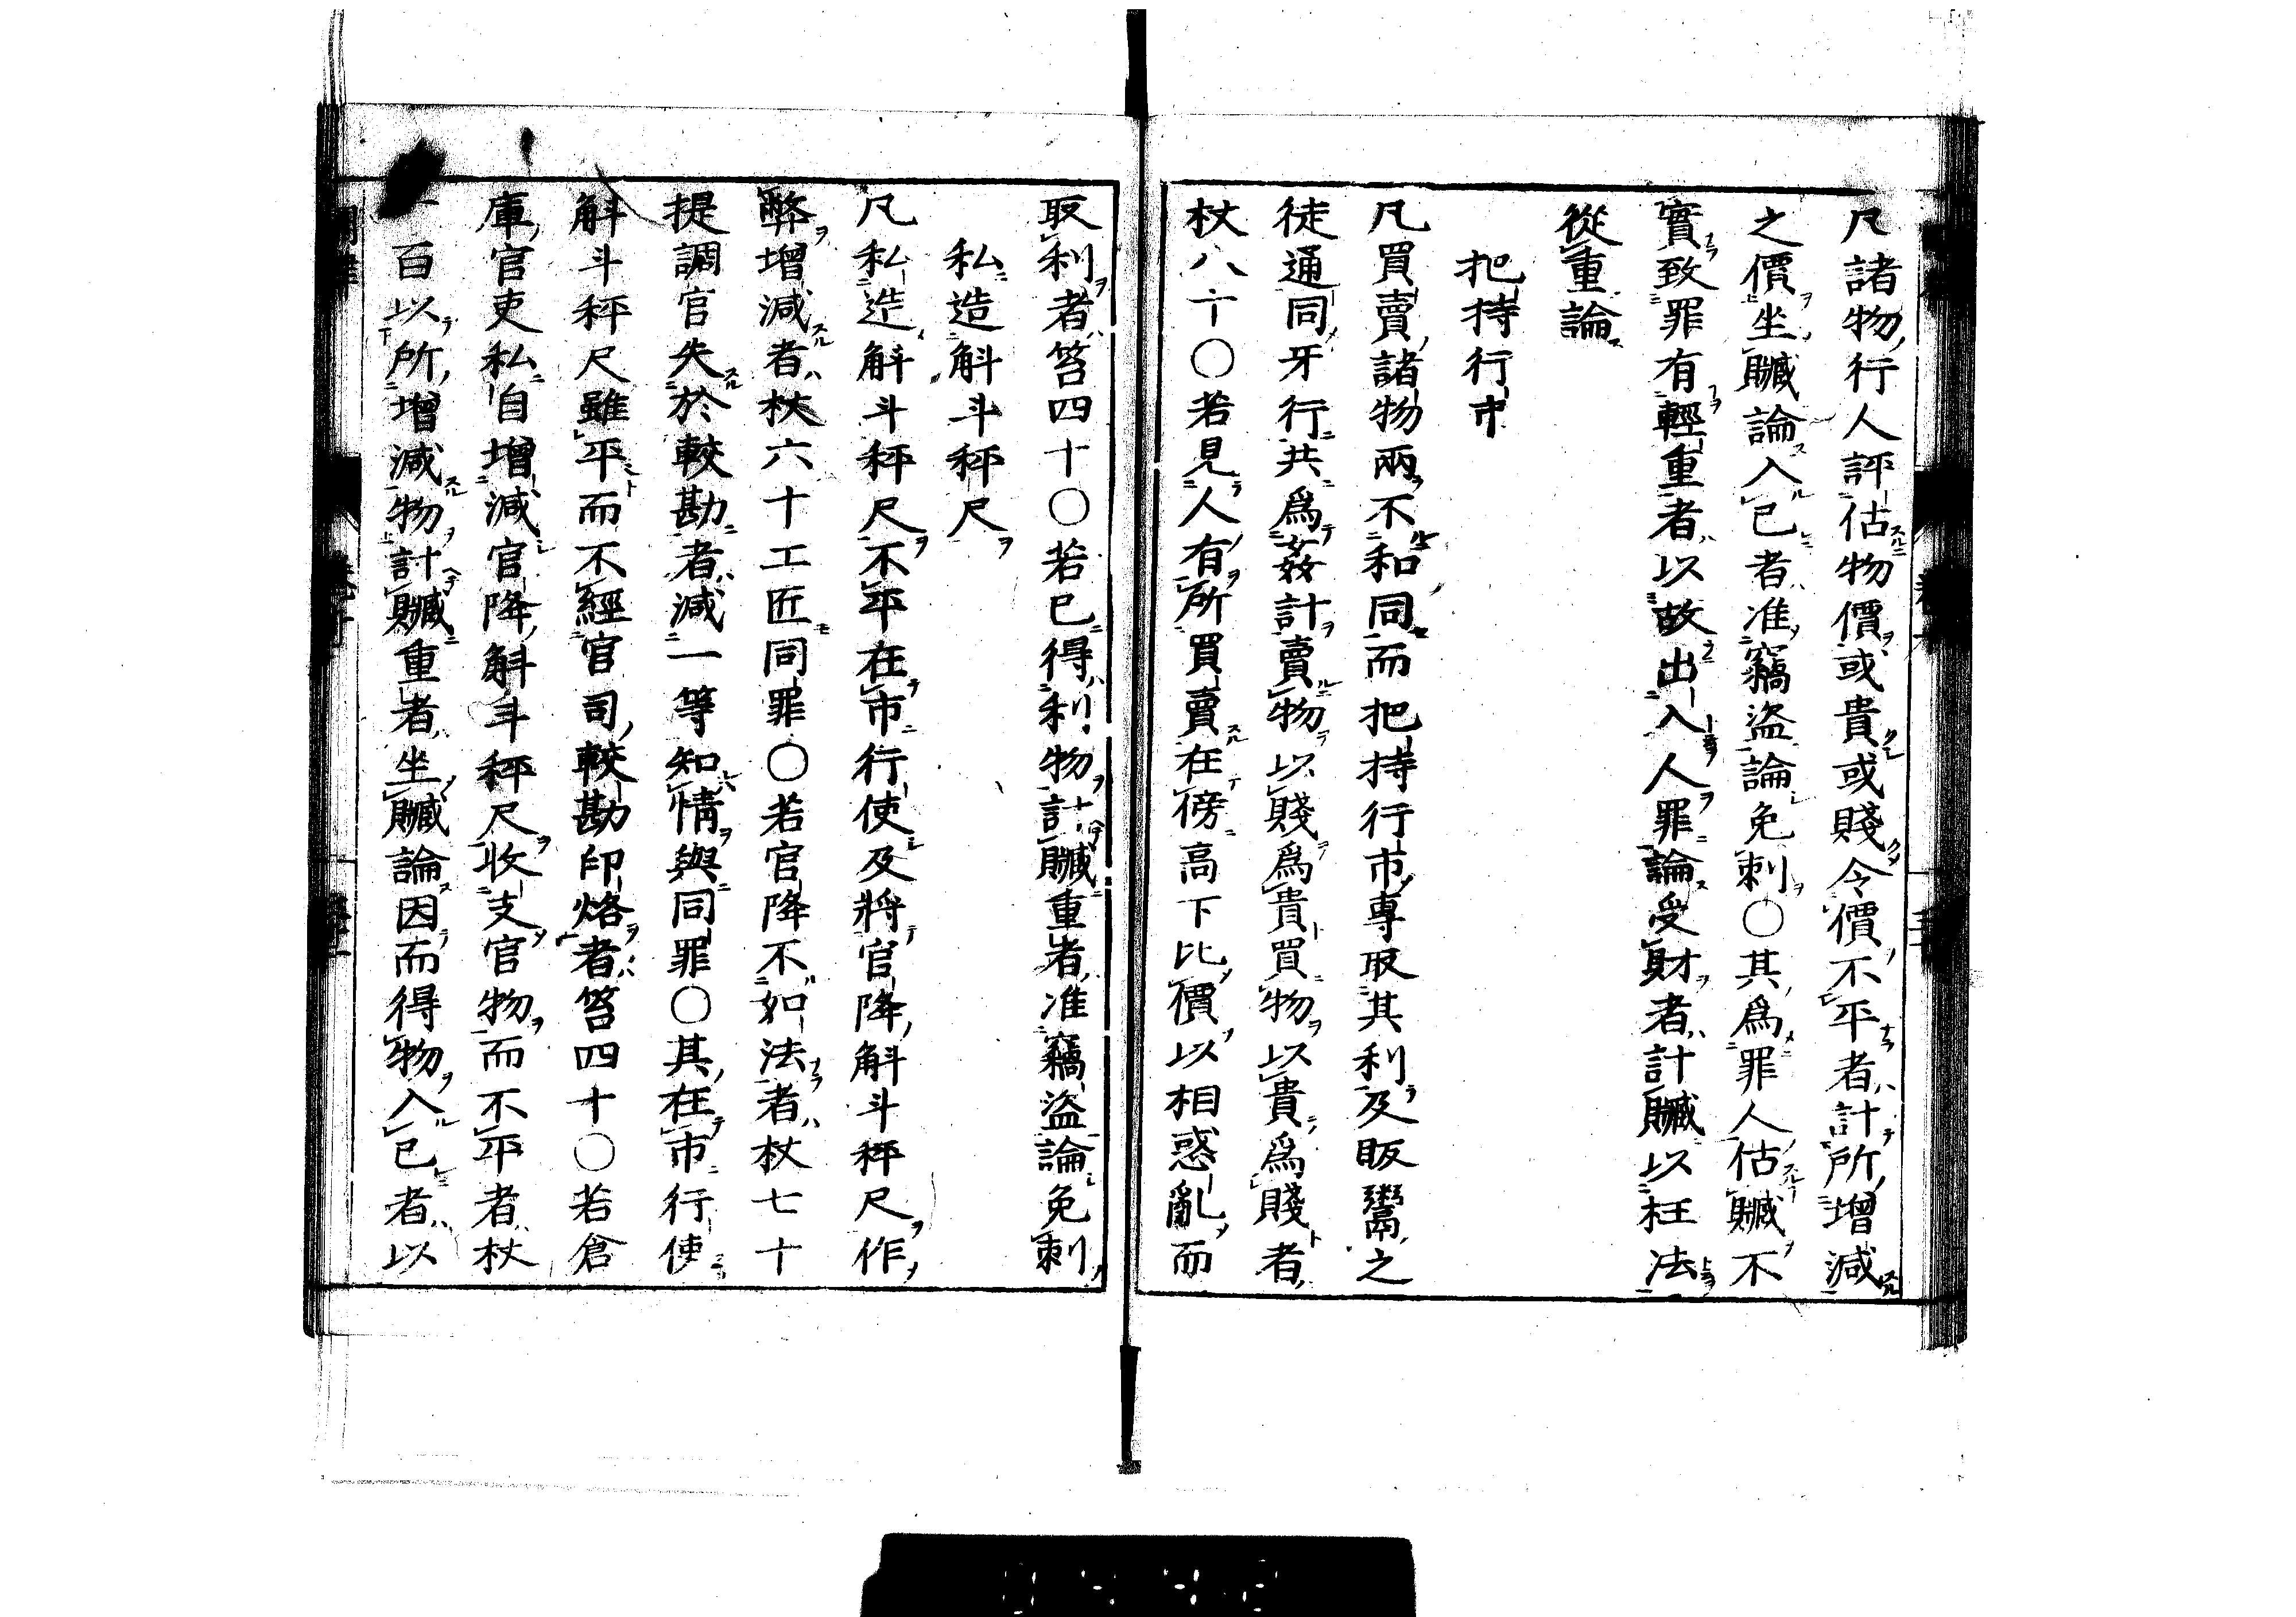 凡諸物行人評估物價或貴或賤令價不平者計所增減
之價坐贓論入己者准竊盜論免刺○其爲罪人估贓不
實致罪有輕重者以故出入人罪論受財者計贓以枉法
從重論
把持行市
凡買賣諸物兩不和同而把持行市專取其利及販鬻之
徒通同牙行共爲姦計賣物以賤爲貴買物以貴爲賤者
杖八十○若見人有所買賣在傍高下比價以相惑亂而
取利者笞四十○若已得利物計贓重者准竊盜論免刺
私造斛斗秤尺
凡私造斛斗秤尺不平在市行使及將官降斛斗秤尺作
弊增減者杖六十工匠同罪○若官降不如法者杖七十
提調官失於較勘者減一等知情與同罪○其在市行使
斛斗秤尺雖平而不經官司較勘印烙者笞四十○若倉
庫官吏私自增減官降斛斗秤尺收支官物而不平者杖
一百以所增減物計贓重者坐贓論因而得物入己者以